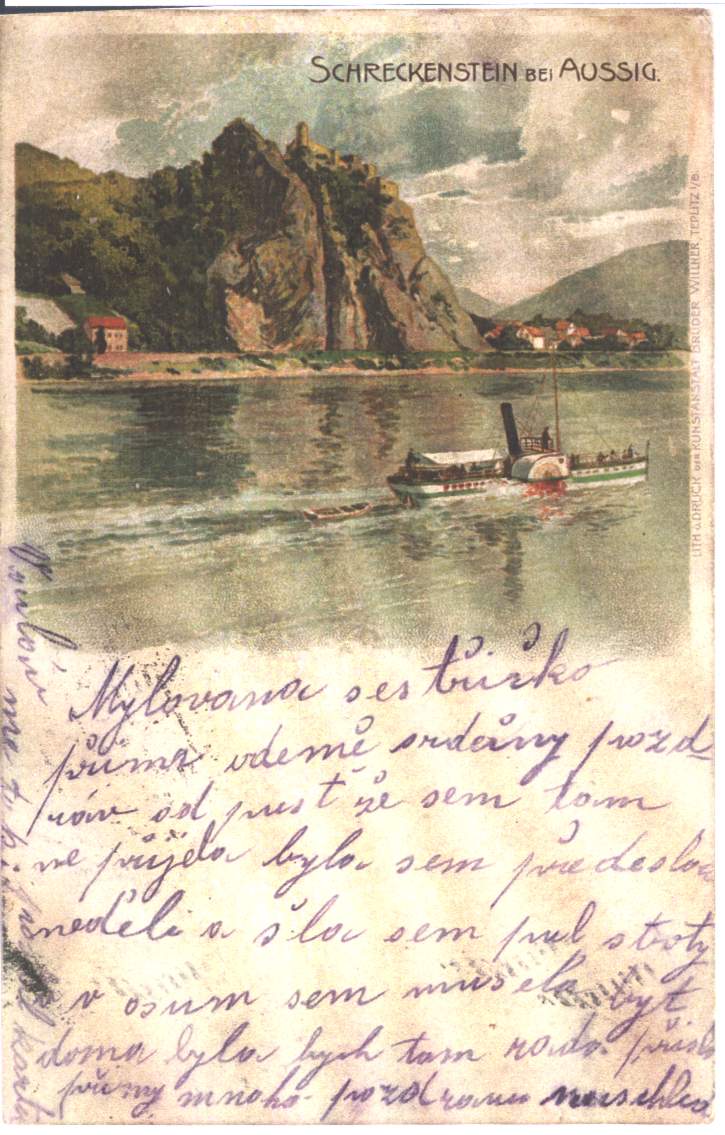 SCHRECKENSTEIN BEI AUSSIG.
LITH. u. DRUCK DER KUNSTANSTALT BRÜDER WILLNER, TEPLITZ i/B.
Mylovana sestřičko
přimi odemě srdečny pozd
rav od pust že sem tam
ne přijela byla sem předešlou
neděli a šla sem pul
v osum sem musela byt
doma byla bych tam rada přišla
přimy mnoho pozdravu
karta